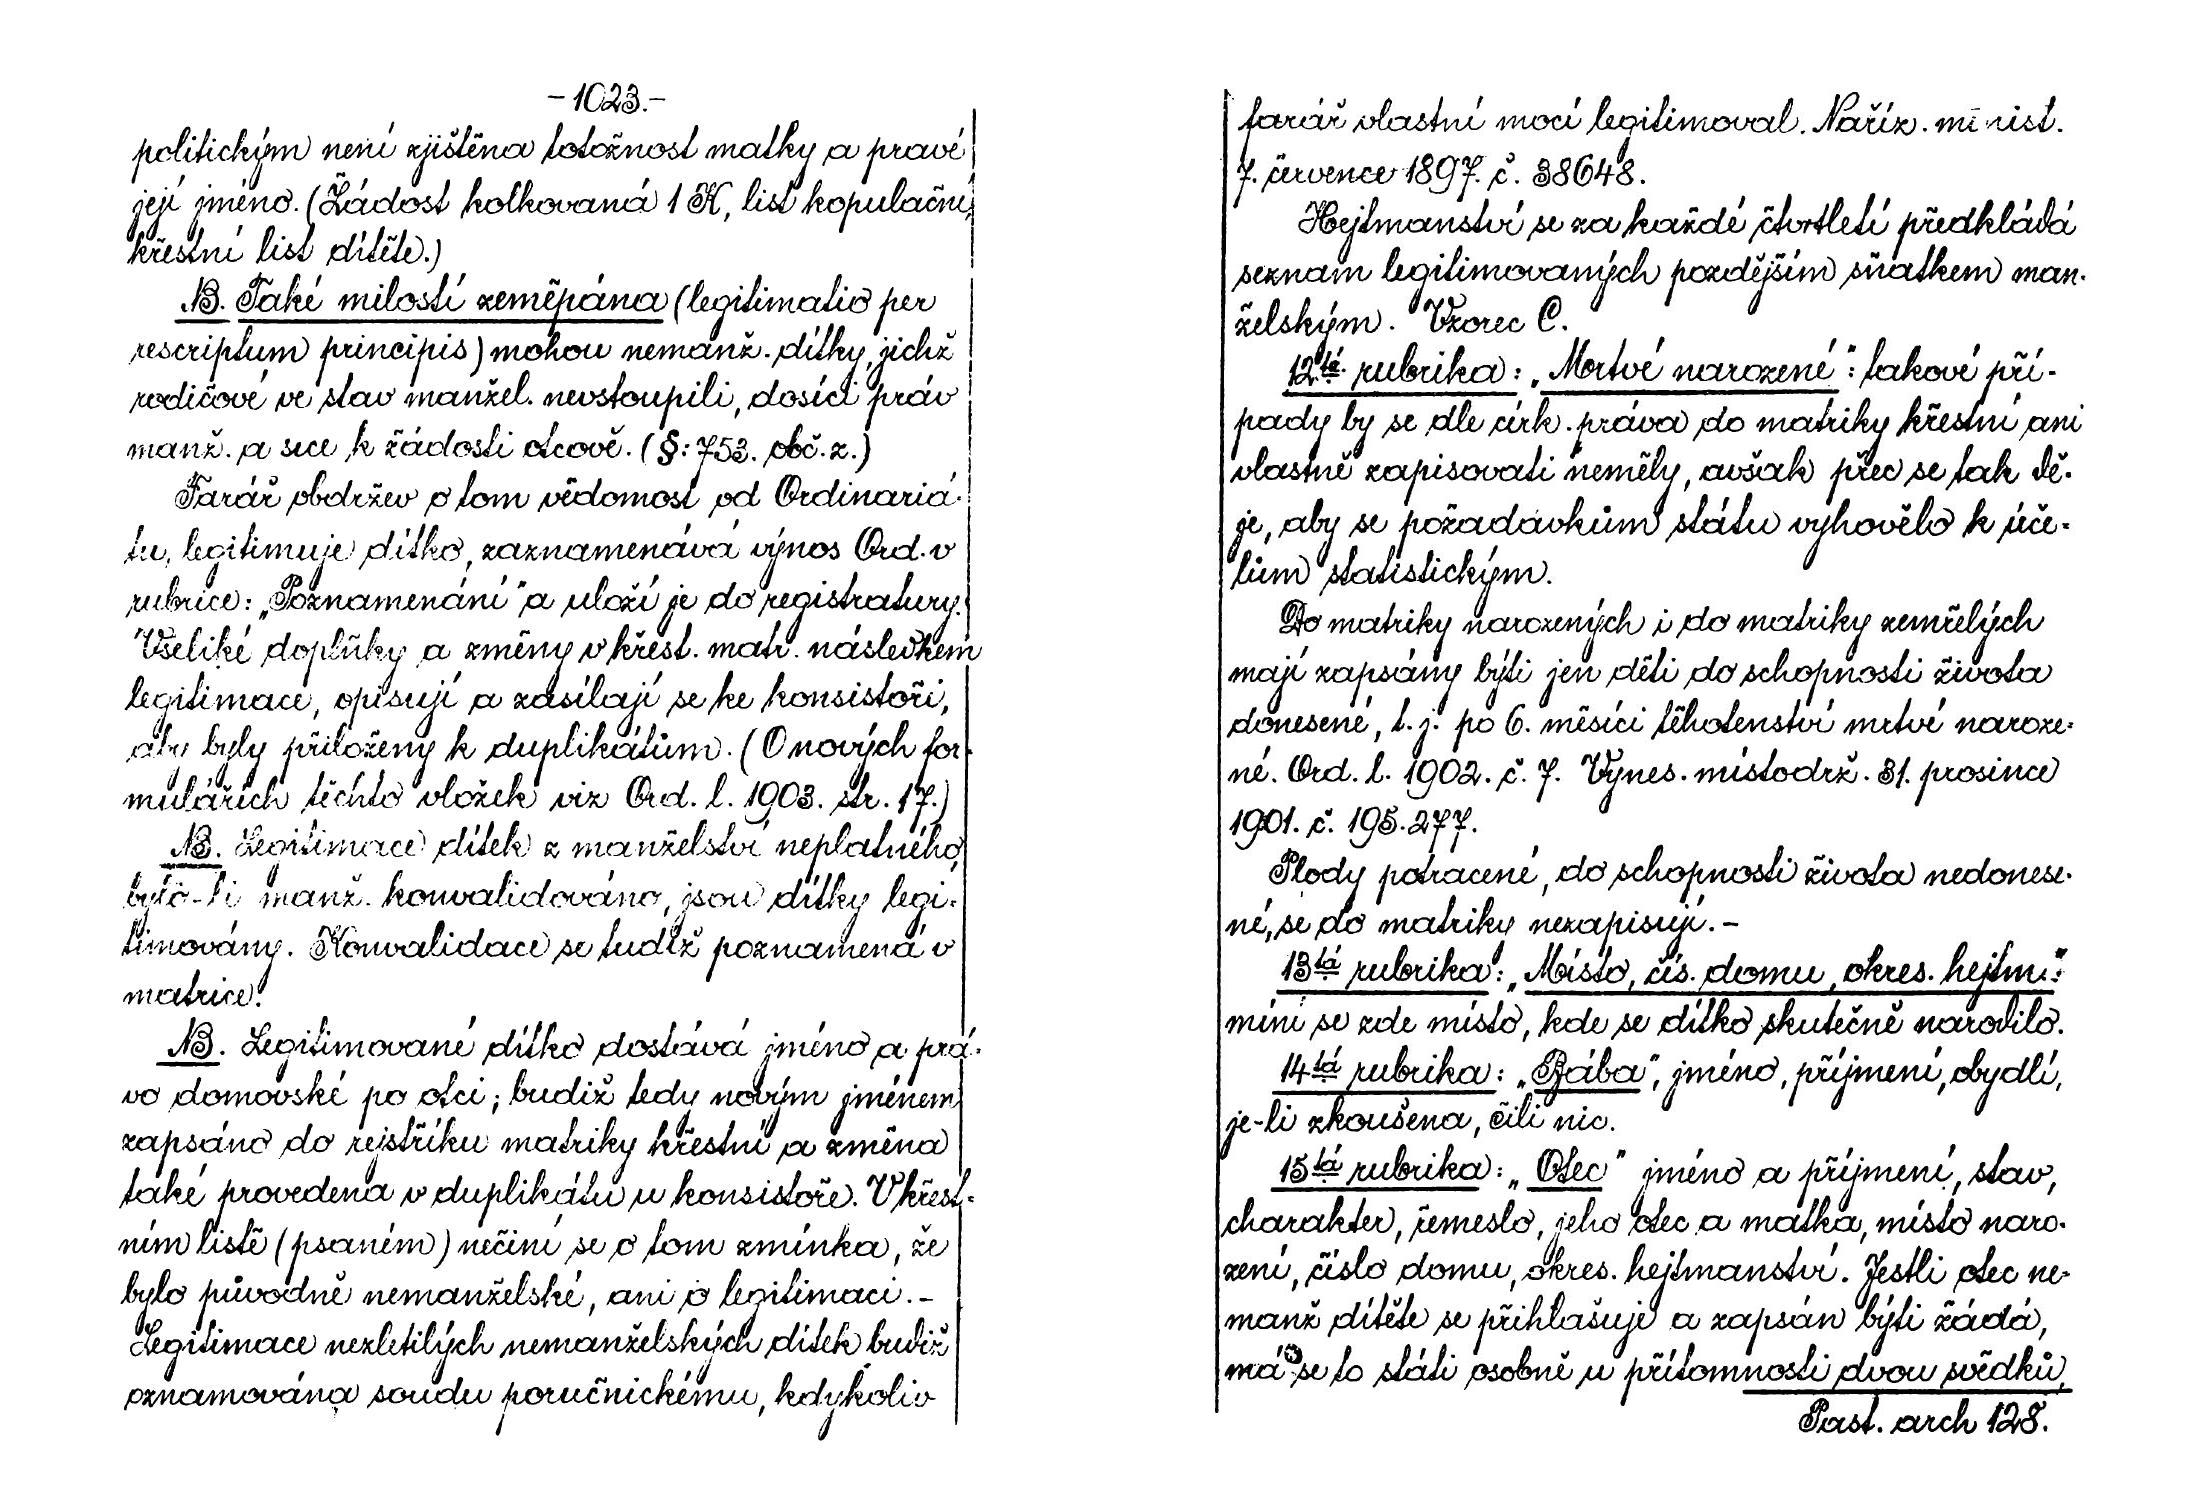 -1023.-
politickým není zjištěna totožnost matky a pravé
její jméno. (Žádost kolkovaná 1 K, list kopulační,
křestní list dítěte.)
NB. Také milostí zeměpána (legitimatio per
rescriptum principis) mohou nemanž. dítky, jichž
rodičové ve stav manžel. nevstoupili, dosíci práv
manž. a sice k žádosti otcově. (§: 753. obč. z.)
Farář obdržev o tom vědomost od Ordinariá-
tu, legitimuje dítko, zaznamenává výnos Ord. v
rubrice: „Poznamenání" a uloží je do registratury.
Veškeré doplňky a změny v křest. matr. následkem
legitimace, opisují a zasílají se ke konsistoři,
aby byly přiloženy k duplikátům. (O nových for-
mulářích těchto vložek viz Ord. l. 1903. str. 17.)
NB. Legitimace dítek z manželství neplatného,
bylo-li manž. konvalidováno, jsou dítky legi-
timovány. Konvalidace se tudíž poznamená v
matrice.
NB. Legitimované dítko dostává jméno a prá-
vo domovské po otci; budiž tedy novým jménem
zapsáno do rejstříku matriky křestní a změna
také provedena v duplikátu u konsistoře. V křest-
ním listě (psaném) nečiní se o tom zmínka, že
bylo původně nemanželské, ani o legitimaci.-
Legitimace nezletilých nemanželských dítek budiž
oznamována soudu poručnickému, kdykoliv
farář vlastní mocí legitimoval. Naříz. minist.
7. července 1897. č. 38648.
Hejtmanství se za každé čtvrtletí předkládá
seznam legitimovaných pozdějším sňatkem man-
želským. Vzorec C.
12tá rubrika: „Mrtvé narozené": takové pří-
pady by se dle círk. práva do matriky křestní ani
vlastně zapisovati neměly, avšak přec se tak dě-
je, aby se požadavkům státu vyhovělo k úče-
lům statistickým.
Do matriky narozených i do matriky zemřelých
mají zapsány býti jen děti do schopnosti života
donesené, t. j. po 6. měsíci těhotenství mrtvé naroze-
né. Ord. l. 1902. č. 7. Vynes. místodrž. 31. prosince
1901. č. 195.277.
Plody potracené, do schopnosti života nedonese-
né, se do matriky nezapisují.-
13tá rubrika: „Místo, čís. domu, okres. hejtm.":
míní se zde místo, kde se dítko skutečně narodilo.
14tá rubrika: „Bába", jméno, příjmení, obydlí,
je-li zkoušena, čili nic.
15tá rubrika: „Otec" jméno a příjmení, stav,
charakter, řemeslo, jeho otec a matka, místo naro-
zení, číslo domu, okres. hejtmanství. Jestli otec ne-
manž dítěte se přihlašuje a zapsán býti žádá,
má se to státi osobně u přítomnosti dvou svědků,
Past. arch 128.